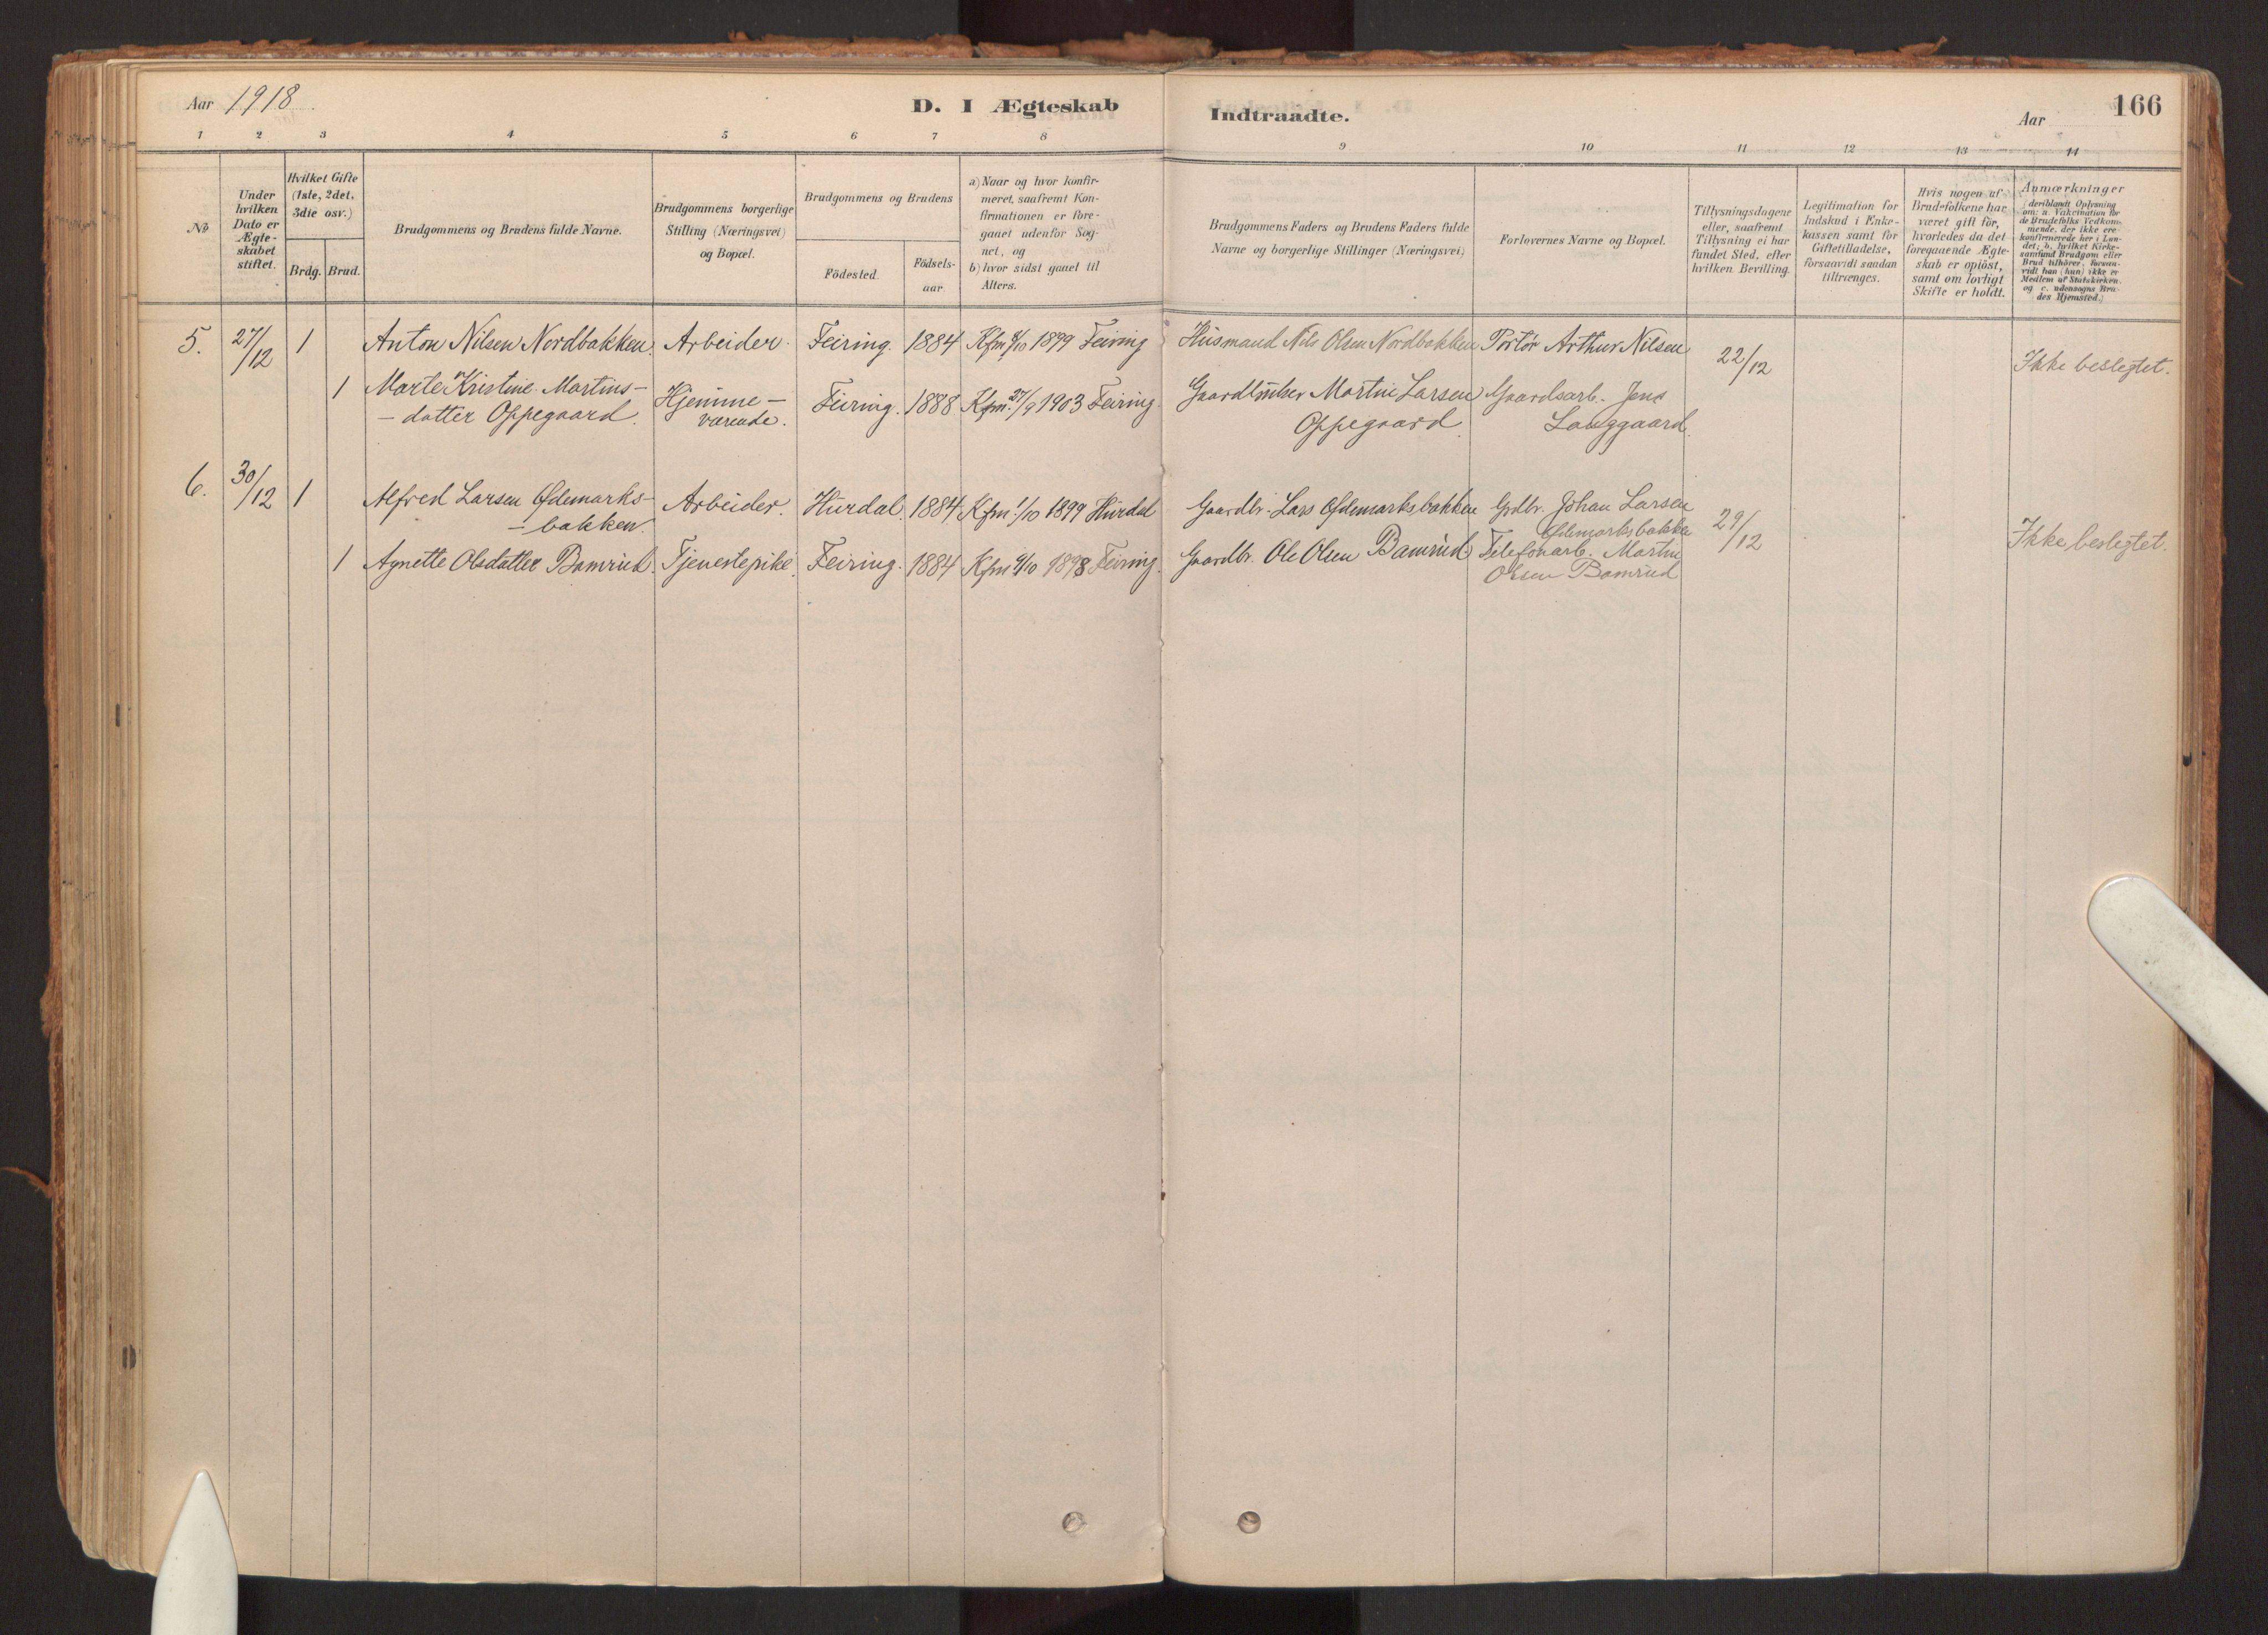 Aar 1918.
D. I Ægteskab
Indtraadte.
Aar
166
1 2 3 4 5 6 7 8 9 10 11 12 13 14
No
Under hvilken Dato er Ægte-skabet stiftet.
Hvilket Gifte (1ste, 2det, 3die osv.)
Brdg. Brud.
Brudgommens og Brudens fulde Navne.
Brudgommens borgerlige Stilling (Næringsvei) og Bopæl.
Brudgommens og Brudens
Födested.
Födsels-aar.
a) Naar og hvor konfir-
meret, saafremt Kon-
firmationen er fore-
gaaet udenfor Sog-
net, og
b) hvor sidst gaaet til
Alters.
Brudgommens Faders og Brudens Faders fulde
Navne og borgerlige Stillinger (Næringsvei)
Forlovernes Navne og Bopæl.
Tillysningsdagene
eller, saafremt
Tillysning ei har
fundet Sted, efter
hvilken Bevilling.
Legitimation for
Indskud i Enke-
kassen samt for
Giftetilladelse,
forsaavidt saadan
tiltrænges.
Hvis nogen af
Brudefolkene har
været gift för,
hvorledes da det
foregaaende Ægte-
skab er oplöst,
samt om lovligt
Skifte er holdt.
Anmærkninger
(deriblandt Oplysning
om: a. Vakcination for
de Brudefolks Vedkom-
mende, der ikke ere
konfirmerede her i Lan-
det; b. hvilket Kirke-
samfund Brudgom eller
Brud tilhörer, forsaa-
vidt han (hun) ikke er
Medlem af Statskirken,
og c. udensogns Bru-
des Hjemsted.)
5. 27/12 1 Anton Nilsen Nordbakken. Arbeider. Feiring. 1884 Kfm 8/10 1899 Feiring Husmand Nils Olsen Nordbakken Portør Arthur Nilsen 22/12 Ikke beslegtet.
1 Marte Kristine Martins-
- datter Oppegaard. Hjemme-
værende. Feiring. 1888 Kfm. 27/9 1903 Feiring. Gaardbruker Martin Larsen
Oppegaard. Gaardsarb. Jens
Langgaard.
6. 30/12 1 Alfred Larsen Ødemarks-
- bakken Arbeider. Hurdal. 1884 Kfm 1/10 1899 Hurdal Gaardbr. Lars Ødemarksbakken Grdbr. Johan Larsen
Ødemarksbakken 29/12 Ikke beslegtet.
1 Agnette Olsdatter Bamrud. Tjenestepike. Feiring. 1884 Kfm 9/10 1898 Feiring. Gaardbr. Ole Olsen Bamrud. Telefonarb. Martin
Olsen Bamrud